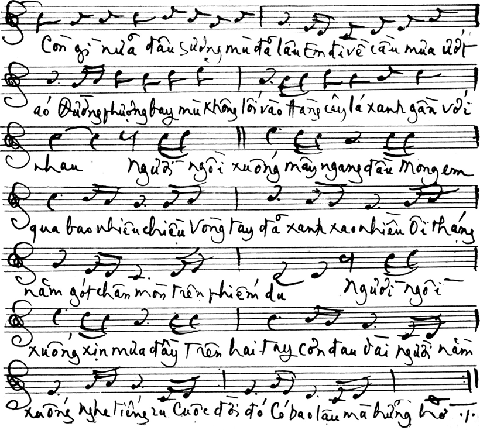 Còn gì nữa đâu sương mù đã lâu Em đi về cầu mưa ướt
áo Đường phượng bay mù không lối vào Hàng cây lá xanh gần với
nhau Người ngồi xuống mây ngang đầu Mong em
qua bao nhiêu chiều Vòng tay đã xanh xao nhiều Ôi tháng
năm gót chân mòn trên phiếm du Người ngồi
xuống xin mưa đầy Trên hai tay cơn đau dài người nằm
xuống nghe tiếng ru Cuộc đời đó Có bao lâu mà hững hờ ./.